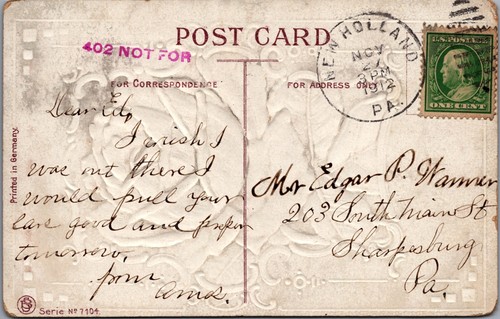 POST CARD
402 NOT FOR
FOR CORRESPONDENCE
FOR ADDRESS ONLY
NEW HOLLAND
NOV
27
3 PM
1912
PA.
U.S. POSTAGE
ONE CENT
Dear Ed,
I wish I
was out there I
would pull your
ears good and proper
tomorrow.
from
Amos.
Mr Edgar P. Wanner
203 South Main St
Sharpsburg
Pa.
Printed in Germany.
Serie No 7104